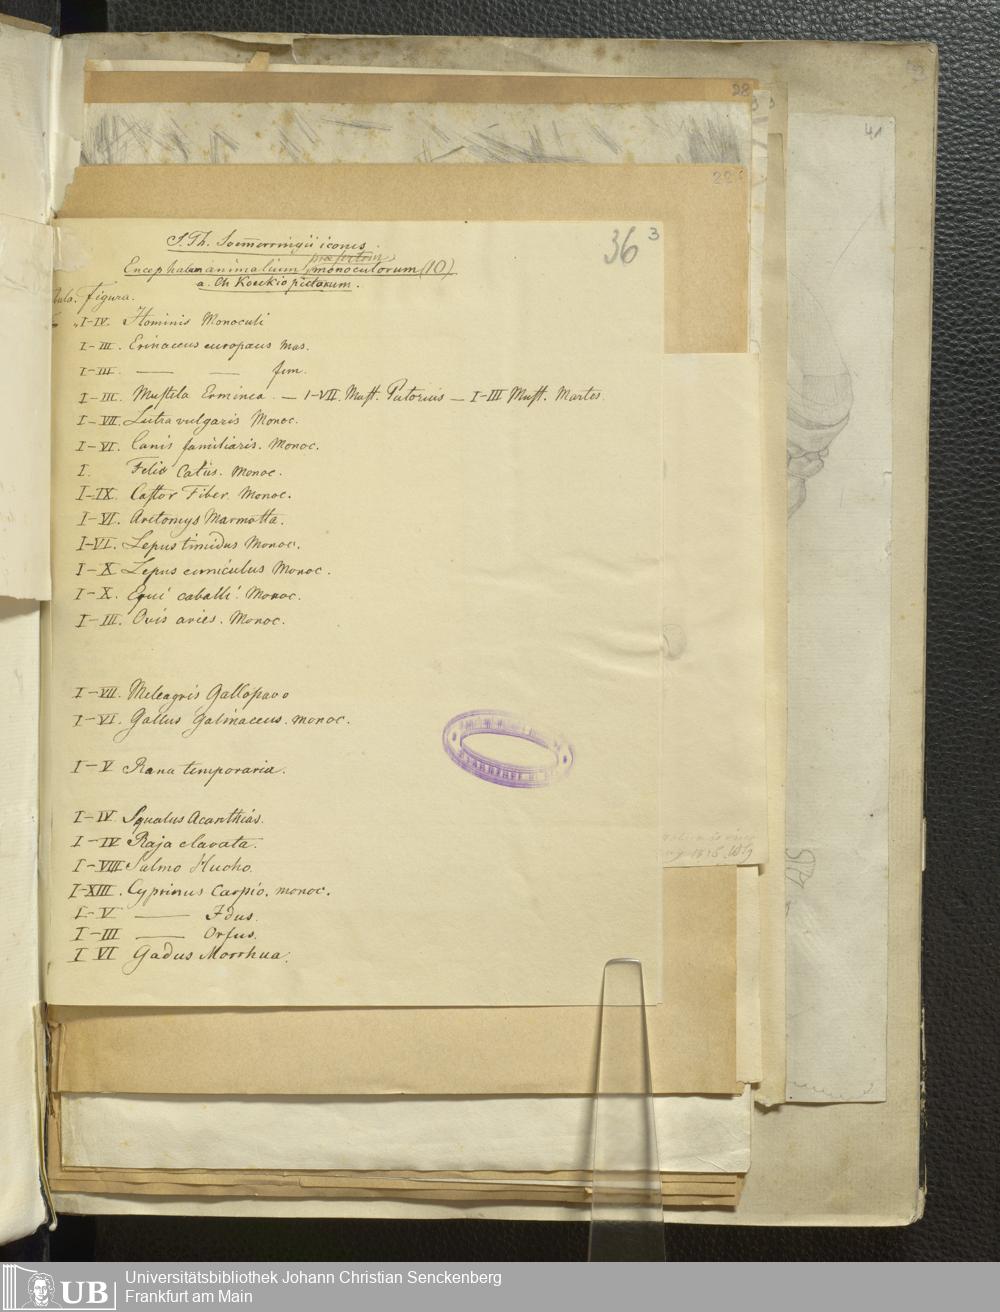 28
41
22
36 3
S. Th. Soemmerringii icones
praesertim
Encephalum animalium monoculorum (10)
a. Ch Koeckio pictarum.
figura.
I-IV. Hominis Monoculi
I-III. Erinaceus europaeus mas.
I-III. — — fem.
I-III. Mustela Erminea. — I-VII. Must. Putorius — I-III Must. Martes.
I-VII. Lutra vulgaris Monoc.
I-VI. Canis familiaris. Monoc.
I. Felis Catus. Monoc.
I-IX. Castor Fiber. Monoc.
I-VI. Arctomys Marmotta.
I-VI. Lepus timidus Monoc.
I-X Lepus cuniculus Monoc.
I-X. Equi caballi. Monoc.
I-III. Ovis aries. Monoc.
I-VII. Meleagris Gallopavo
I-VI. Gallus galinaceus. monoc.
I-V Rana temporaria.
I-IV. Squalus Acanthias.
I-IV Raja clavata.
I-VIII Salmo Hucho.
I-XIII. Cyprinus Carpio. monoc.
I-V — Idus.
I-III — Orfus.
I VI Gadus Morrhua.
UB
Universitätsbibliothek Johann Christian Senckenberg
Frankfurt am Main